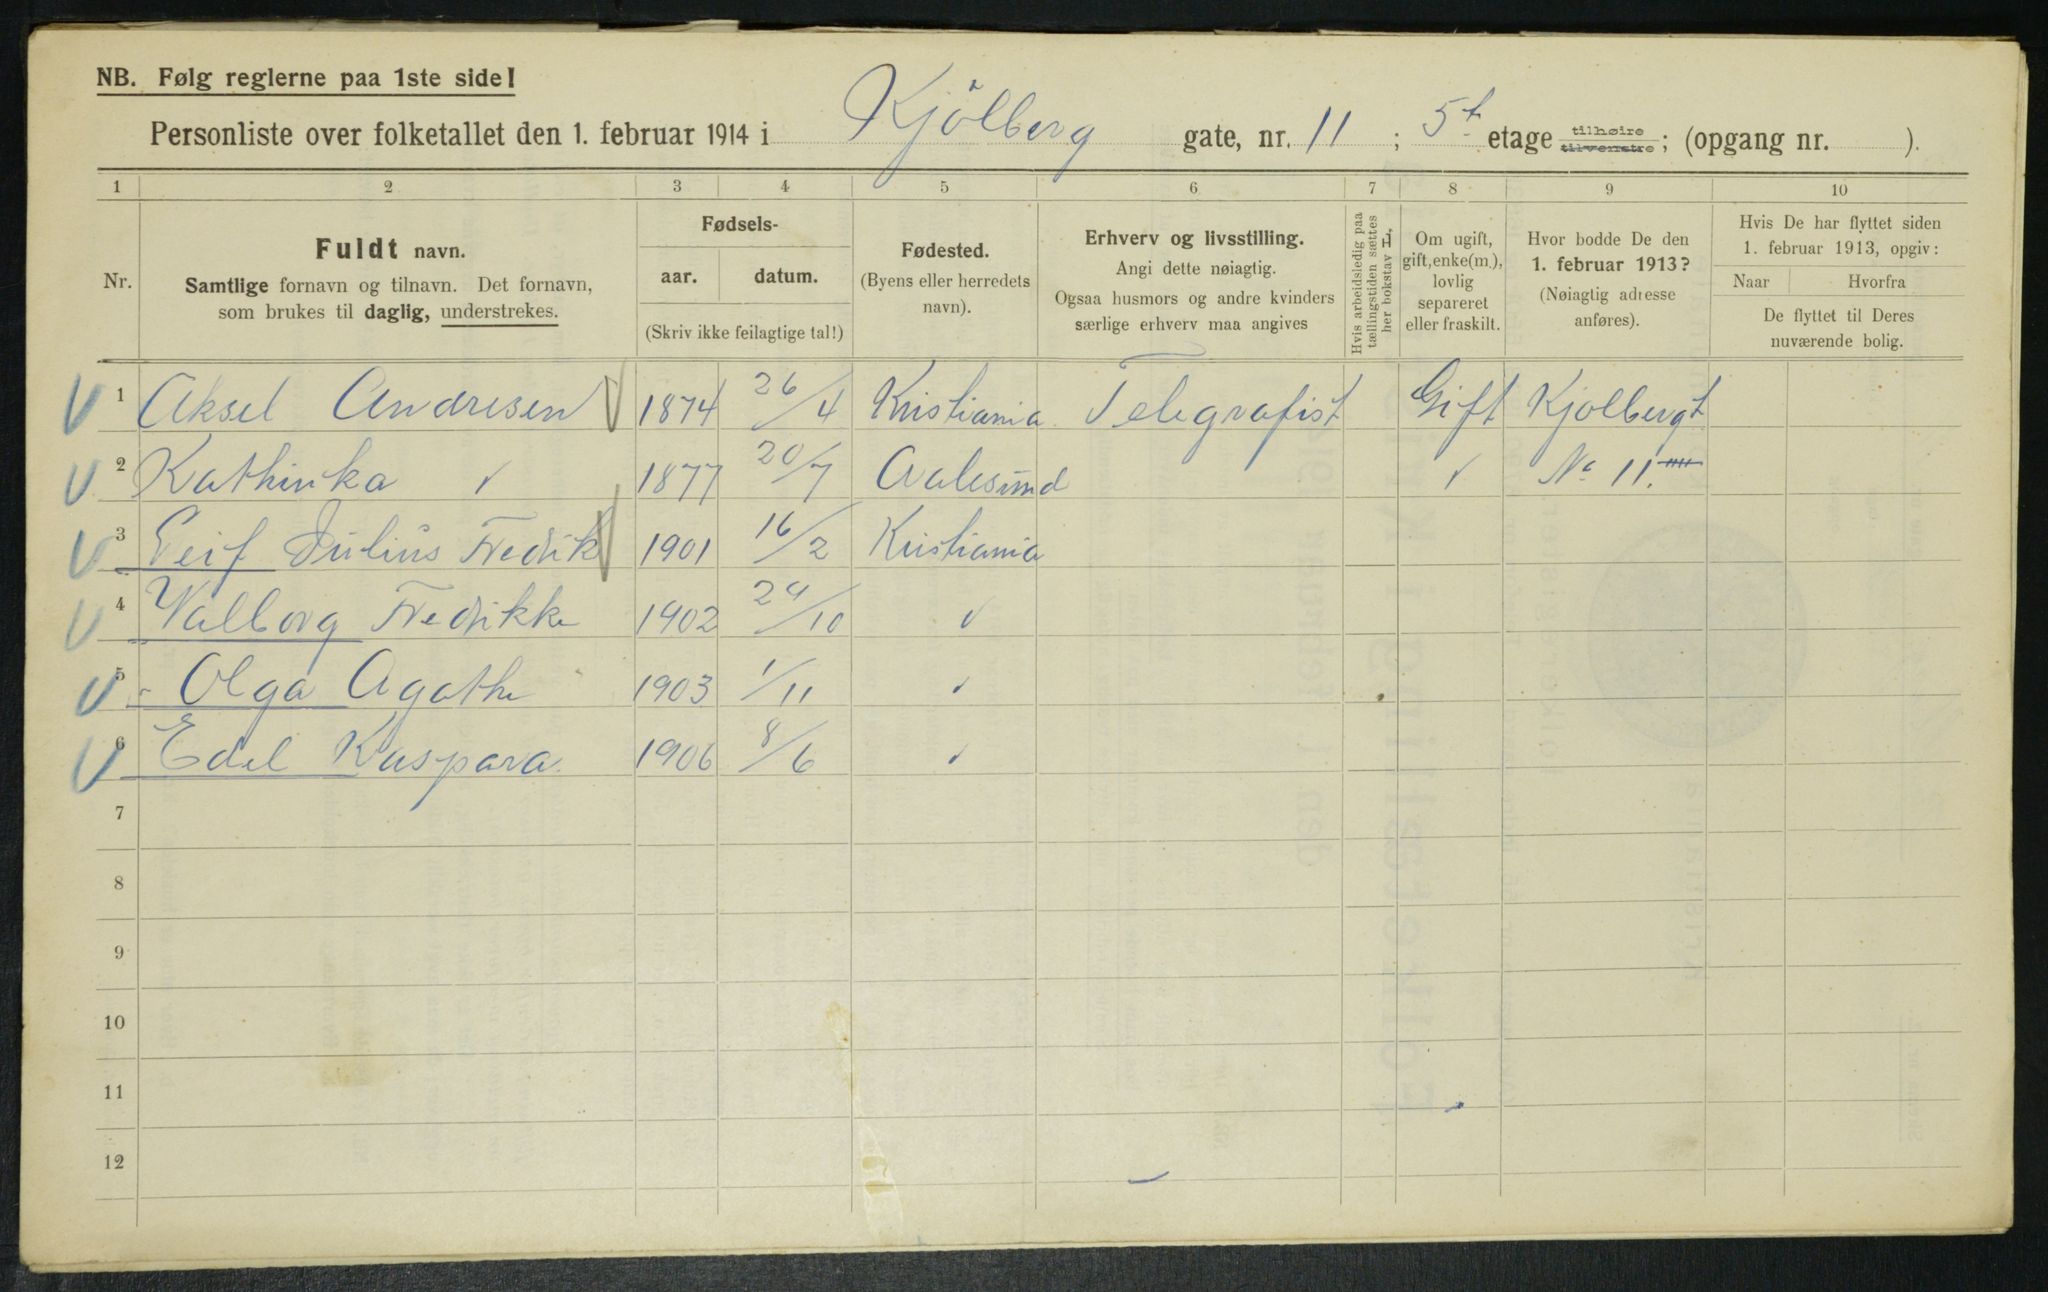 NB. Følg reglerne paa 1ste side!
Personliste over folketallet den 1. februar 1914 i Kjölberg gate, nr. 11 ; 5t etage tilhøire tilvenstre ; (opgang nr. ).
1 2 3 4 5 6 7 8 9 10
Nr.
Fuldt navn.
Samtlige fornavn og tilnavn. Det fornavn,
som brukes til daglig, understrekes.
Fødsels-
aar. datum.
(Skriv ikke feilagtige tal!)
Fødested.
(Byens eller herredets
navn).
Erhverv og livsstilling.
Angi dette nøiagtig.
Ogsaa husmors og andre kvinders
særlige erhverv maa angives
Hvis arbeidsledig paa
tællingstiden sættes
her bokstav L.
Om ugift,
gift, enke(m.),
lovlig
separeret
eller fraskilt.
Hvor bodde De den
1. februar 1913?
(Nøiagtig adresse
anføres).
Hvis De har flyttet siden
1. februar 1913, opgiv:
Naar Hvorfra
De flyttet til Deres
nuværende bolig.
1 Aksel Andresen 1874 26/4 Kristiania Telegrafist Gift Kjölbergt
2 Kathinka √ 1877 20/7 Aalesund √ No 11.
3 Leif Julius Fredrik 1901 16/2 Kristiania
4 Valborg Fredrikke 1902 29/10 √
5 Olga Agathe 1903 1/11 √
6 Edel Kaspara 1906 8/6 √
7
8
9
10
11
12